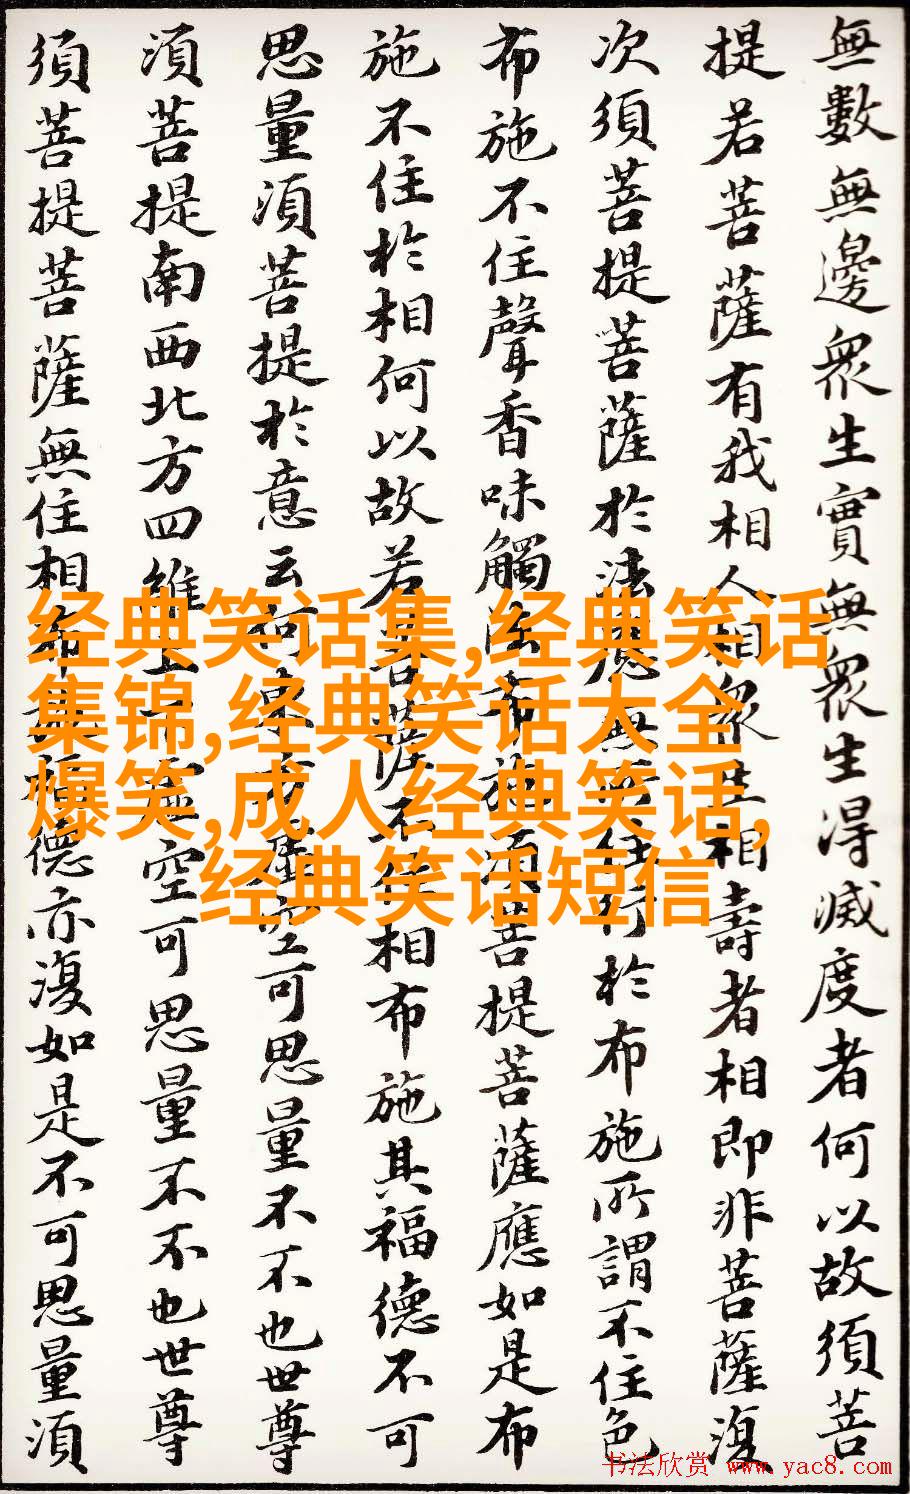 無數無邊眾生實無眾生得滅度者何以故須菩
提若菩薩有我相人相眾生相壽者相即非菩薩復
次須菩提菩薩於法應無所住行於布施所謂不住色
布施不住聲香味觸法布施須菩提菩薩應如是布
施不住於相何以故若菩薩不住相布施其福德不可
思量須菩提於意云何東方虛空可思量不不也世尊
須菩提南西北方四維上下虛空可思量不不也世尊
須菩提菩薩無住相布施福德亦復如是不可思量須
经典笑话集,经典笑话
集锦,经典笑话大全
爆笑,成人经典笑话,
经典笑话短信
书法欣赏 www.yac8.com